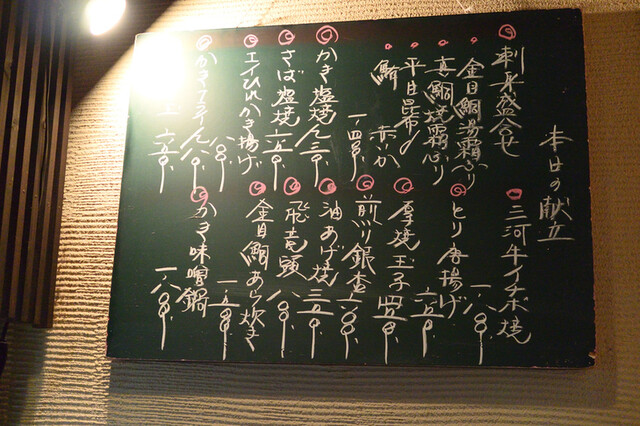 本日の献立
刺身盛合せ
金目鯛湯霜ぶり
真鯛焼霜ぶり
平目昆布〆
鰤 赤いか
一、四〇〇
かき塩焼
さば塩焼 六五〇
エイひれかき揚げ
八〇〇
かき天ぷら
六五〇
三河牛イチボ焼
一、八〇〇
とり唐揚げ
六五〇
厚焼玉子 四五〇
煎り銀杏 六〇〇
油あげ焼 三五〇
飛竜頭 八〇〇
金目鯛あら炊き
一、五〇〇
かき味噌鍋
一、八〇〇